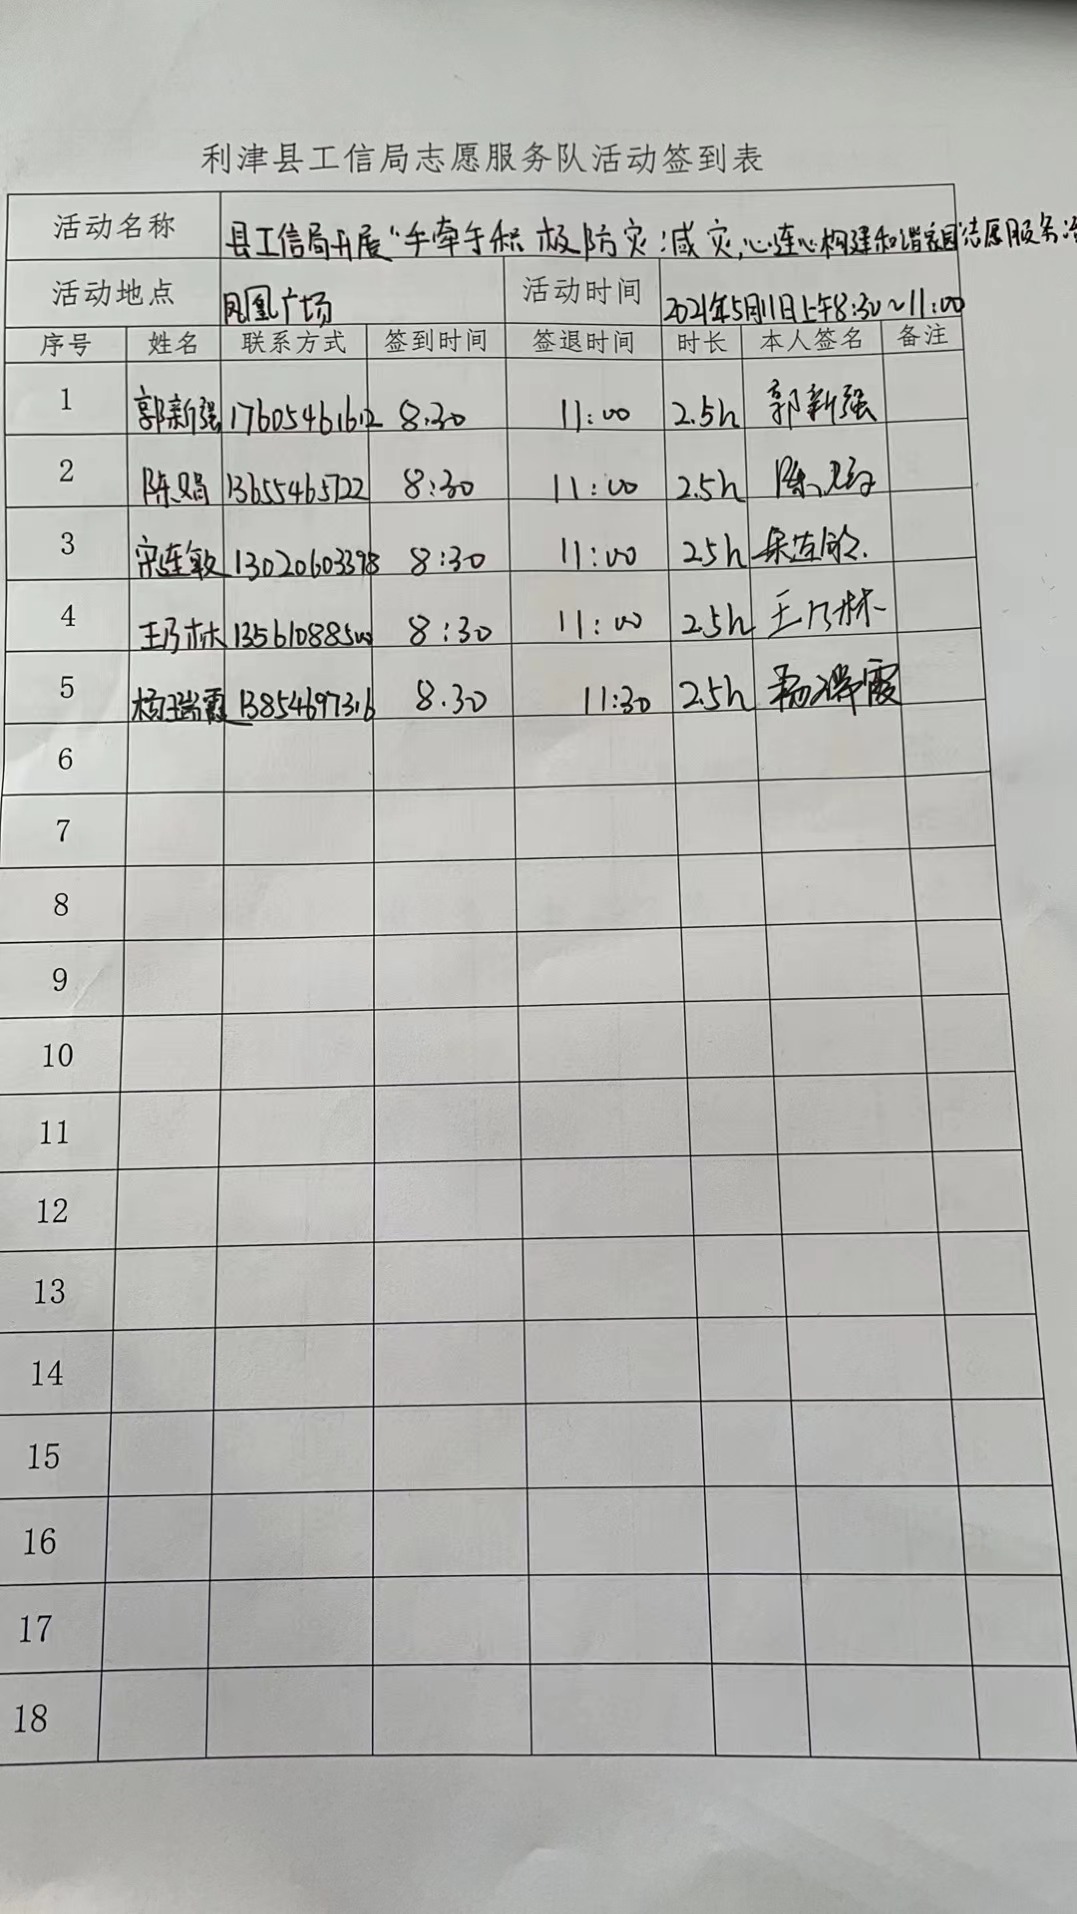 利津县工信局志愿服务队活动签到表
活动名称 县工信局开展“手牵手积极防灾减灾,心连心构建和谐家园志愿服务活
活动地点 凤凰广场 活动时间 2021年5月11日上午8:30~11:00
序号 姓名 联系方式 签到时间 签退时间 时长 本人签名 备注
1 郭新强 17605461612 8.30 11:00 2.5h 郭新强
2 陈娟 13655465722 8:30 11:00 2.5h 陈娟
3 宋连敏 13020603398 8:30 11:00 2.5h
4 王乃林 13561088500 8:30 11:00 2.5h 王乃林
5 杨瑞霞 13854697316 8.30 11:30 2.5h 杨瑞霞
6
7
8
9
10
11
12
13
14
15
16
17
18